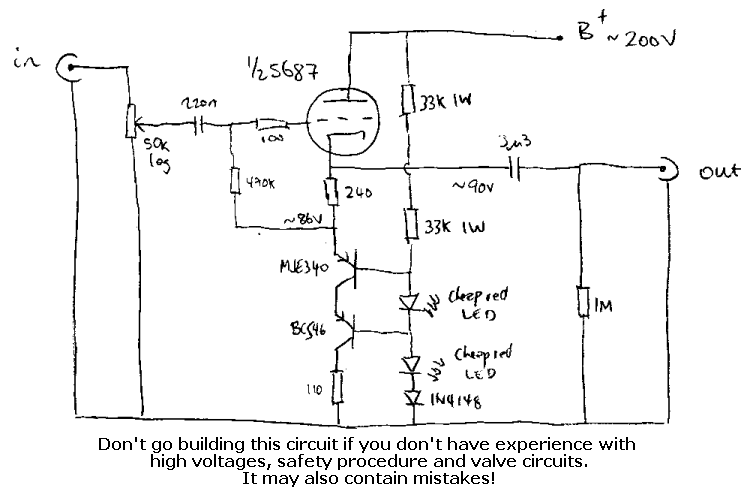 in
1/2 5687
B+ ~200V
33K 1W
220n
50k
log
100
3u3
470K
240
~90V
out
~86V
33K 1W
MJE340
Cheap red
LED
1M
BC546
Cheap red
LED
110
1N4148
Don't go building this circuit if you don't have experience with
high voltages, safety procedure and valve circuits.
It may also contain mistakes!